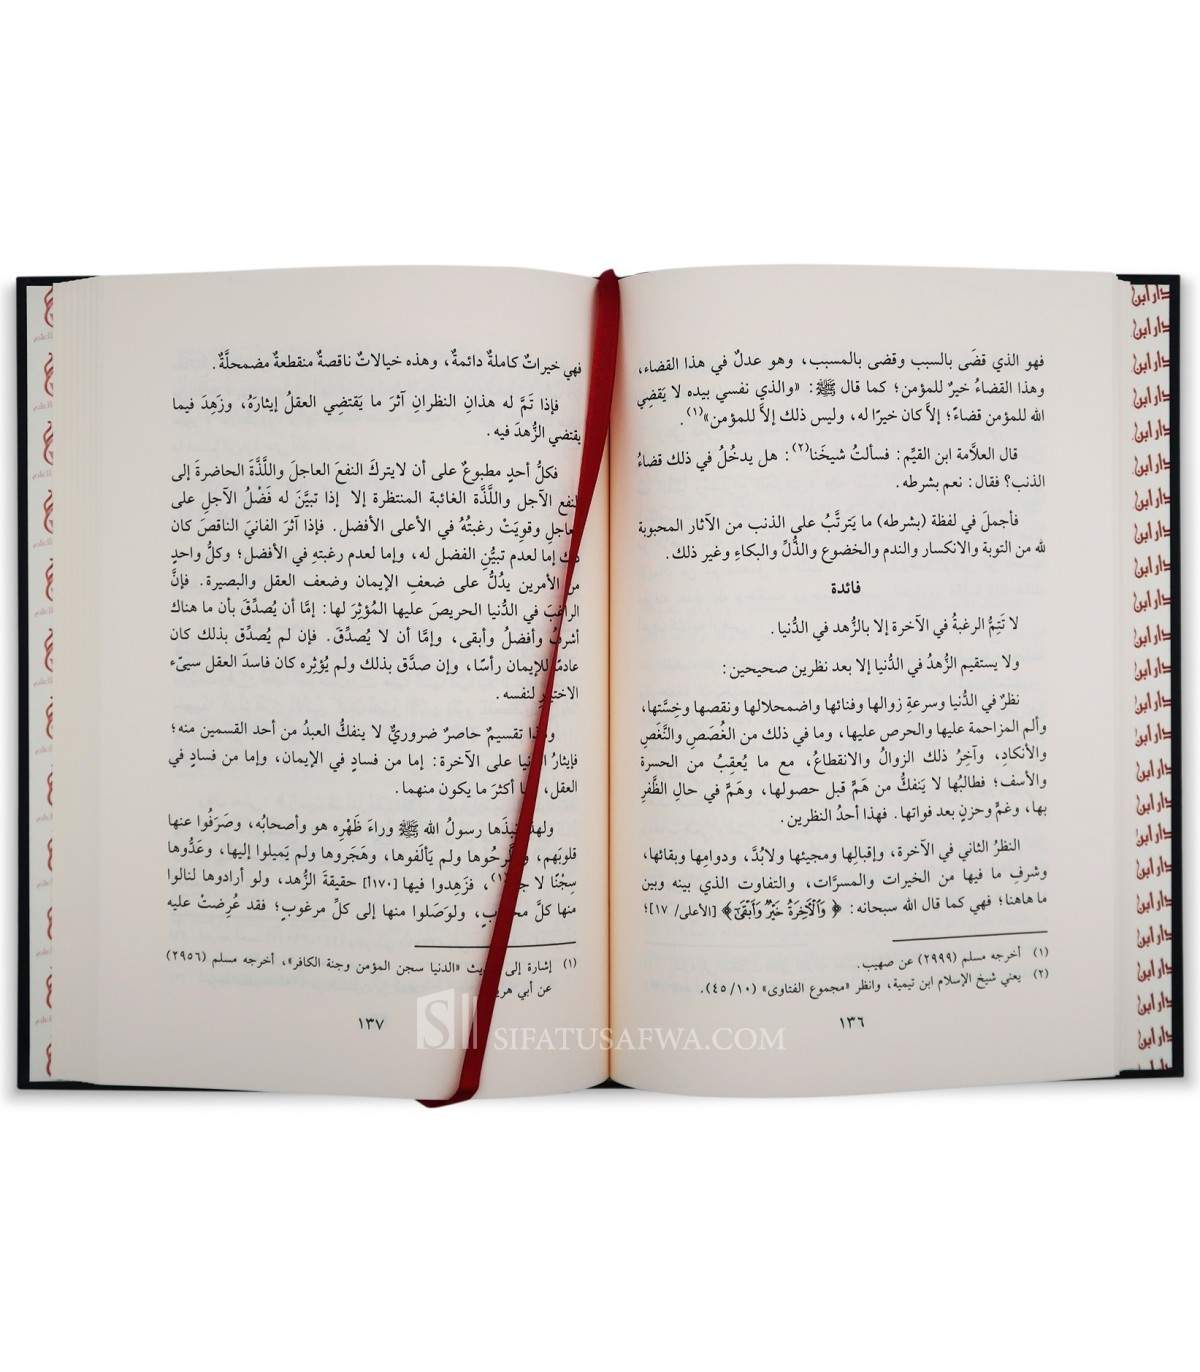 فهو الذي قضَى بالسبب وقضى بالمسبب، وهو عدلٌ في هذا القضاء،
وهذا القضاءُ خيرٌ للمؤمن؛ كما قال ﷺ: «والذي نفسي بيده لا يَقضِي
الله للمؤمن قضاءً؛ إلاَّ كان خيرًا له، وليس ذلك إلاَّ للمؤمن»(١).
قال العلاَّمة ابن القيِّم: فسألتُ شيخَنا(٢): هل يدخُلُ في ذلك قضاءُ
الذنب؟ فقال: نعم بشرطه.
فأجملَ في لفظة (بشرطه) ما يَترتَّبُ على الذنب من الآثار المحبوبة
لله من التوبة والانكسار والندم والخضوع والذُّلِّ والبكاءِ وغير ذلك.
فائدة
لا تَتِمُّ الرغبةُ في الآخرة إلا بالزُّهد في الدُّنيا.
ولا يستقيم الزُّهدُ في الدُّنيا إلا بعد نظرين صحيحين:
نظرٌ في الدُّنيا وسرعةِ زوالها وفنائها واضمحلالها ونقصها وخِسَّتها،
وألم المزاحمة عليها والحرص عليها، وما في ذلك من الغُصَصِ والنَّغَصِ
والأنكادِ، وآخِرُ ذلك الزوالُ والانقطاعُ، مع ما يُعقِبُ من الحسرة
والأسف؛ فطالبُها لا يَنفكُّ من هَمٍّ قبل حصولها، وهَمٍّ في حالِ الظَّفرِ
بها، وغمٍّ وحزنٍ بعد فواتها. فهذا أحدُ النظرين.
النظرُ الثاني في الآخرة، وإقبالِها ومجيئها ولابُدَّ، ودوامِها وبقائها،
وشرفِ ما فيها من الخيرات والمسرَّات، والتفاوت الذي بينه وبين
ما هاهنا؛ فهي كما قال الله سبحانه: ﴿ وَٱلْآخِرَةُ خَيْرٌ وَأَبْقَىٰٓ﴾ [الأعلى/ ١٧]؛
(١) أخرجه مسلم (٢٩٩٩) عن صهيب.
(٢) يعني شيخ الإسلام ابن تيمية، وانظر «مجموع الفتاوى» (١٠/ ٤٥).
١٣٦
فهي خيراتٌ كاملةٌ دائمةٌ، وهذه خيالاتٌ ناقصةٌ منقطعةٌ مضمحلَّةٌ.
فإذا تَمَّ له هذانِ النظرانِ آثرَ ما يَقتضِي العقلُ إيثارَهُ، وزَهِدَ فيما
يقتضي الزُّهدَ فيه.
فكلُّ أحدٍ مطبوعٌ على أن لايتركَ النفعَ العاجلَ واللَّذَّةَ الحاضرةَ إلى
النفع الآجل واللَّذَّة الغائبة المنتظرة إلا إذا تبيَّنَ له فَضْلُ الآجلِ على
العاجلِ وقوِيَتْ رغبتُهُ في الأعلى الأفضل. فإذا آثرَ الفانيَ الناقصَ كان
ذلك إما لعدم تبيُّنِ الفضل له، وإما لعدم رغبتهِ في الأفضل؛ وكلُّ واحدٍ
من الأمرين يدُلُّ على ضعفِ الإيمان وضعف العقل والبصيرة. فإنَّ
الراغبَ في الدُّنيا الحريصَ عليها المُؤثِرَ لها: إمَّا أن يُصدِّقَ بأن ما هناك
أشرفُ وأفضلُ وأبقى، وإمَّا أن لا يُصدِّقَ. فإن لم يُصدِّق بذلك كان
عادمًا للإيمان رأسًا، وإن صدَّق بذلك ولم يُؤثِره كان فاسدَ العقل سيىء
الاختيارِ لنفسه.
وهذا تقسيمٌ حاصرٌ ضروريٌّ لا ينفكُّ العبدُ من أحد القسمين منه؛
فإيثارُ الدنيا على الآخرة: إما من فسادٍ في الإيمان، وإما من فسادٍ في
العقل، أكثرَ ما يكون منهما.
ولهذا نبذَها رسولُ الله ﷺ وراءَ ظَهْرِه هو وأصحابُه، وصَرَفُوا عنها
قلوبَهم، واطَّرحُوها ولم يَألَفوها، وهَجَروها ولم يَميلوا إليها، وعَدُّوها
سِجْنًا لا جنة(١)، فزَهِدوا فيها [١٧٠أ] حقيقةَ الزُّهد، ولو أرادوها لنالوا
منها كلَّ محبوبٍ، ولوَصَلوا منها إلى كلِّ مرغوبٍ؛ فقد عُرِضتْ عليه
(١) إشارة إلى حديث «الدنيا سجن المؤمن وجنة الكافر»، أخرجه مسلم (٢٩٥٦)
عن أبي هريرة
١٣٧
SIFATUSAFWA.COM